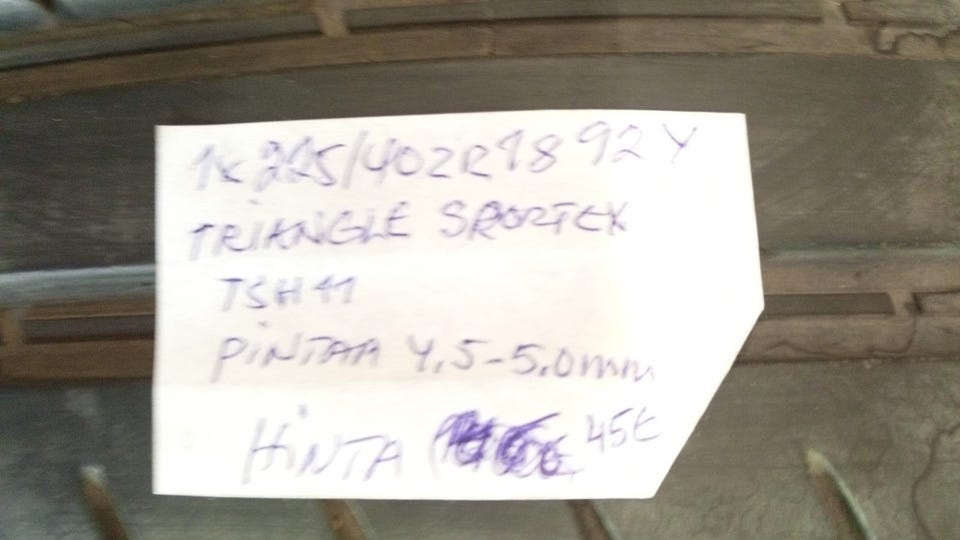 1x 225/40ZR18 92Y
TRIANGLE SPORTEX
TSH11
PINTAA 4,5-5,0mm
HINTA 45€